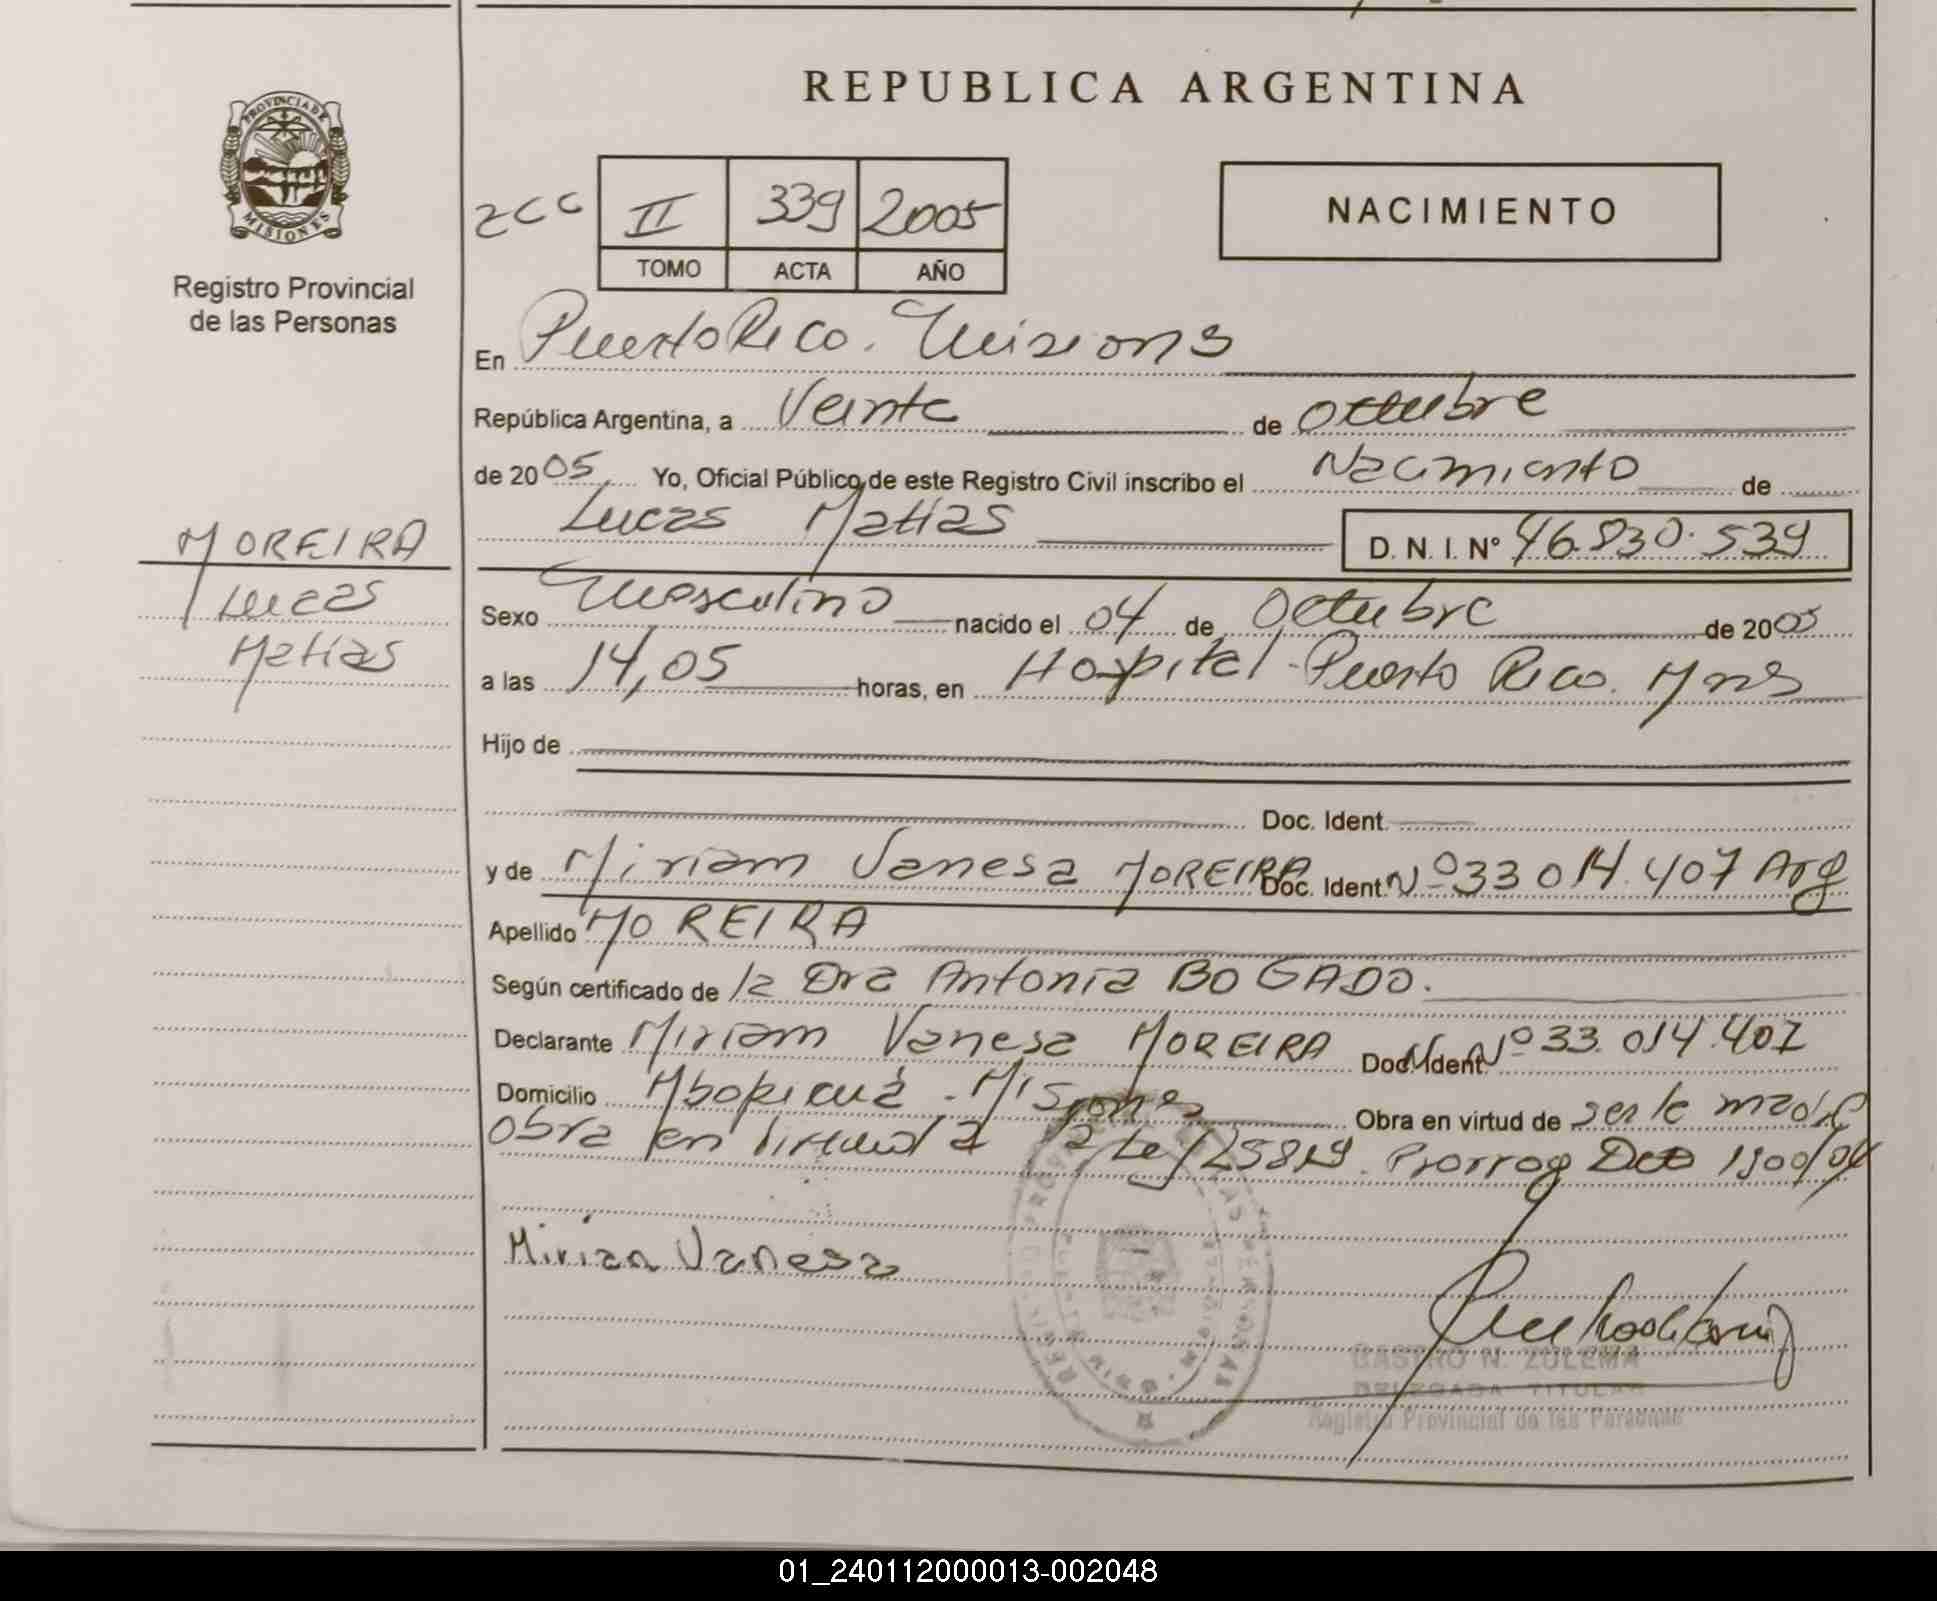 REPUBLICA ARGENTINA
PROVINCIA DE
MISIONES
Registro Provincial
de las Personas
2CC II 339 2005
TOMO ACTA AÑO
NACIMIENTO
En Puerto Rico. Misiones
República Argentina, a Veinte de Octubre
de 2005 Yo, Oficial Público de este Registro Civil inscribo el Nacimiento de
Lucas Matias D. N. I. Nº 46.830.539
MOREIRA
Lucas
Matias
Sexo Masculino nacido el 04 de Octubre de 2005
a las 14,05 horas, en Hospital - Puerto Rico. Mnes
Hijo de
Doc. Ident.
y de Miriam Vanesa MOREIRA Doc. Ident. Nº 33 014.407 Arg
Apellido MOREIRA
Según certificado de la Dra Antonia BOGADO.
Declarante Miriam Vanesa MOREIRA Doc. Ident. Nº 33.014.407
Domicilio Mbopicuá - Misiones Obra en virtud de ser la madre
Obra en virtud a la Ley 25819. Prorrog Dto 1900/04
Mirian Vanesa
CASTRO N. ZULEMA
DELEGADA TITULAR
Registro Provincial de las Personas
01_240112000013-002048